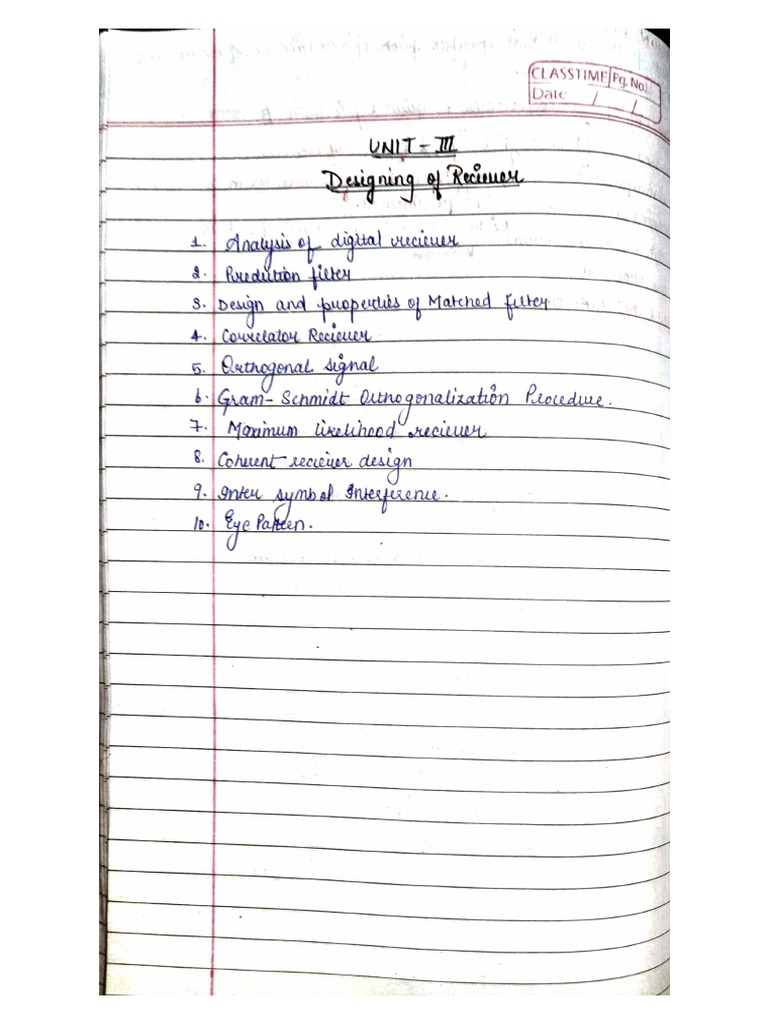 CLASSTIME Pg. No.
Date / /
UNIT - III
Designing of Reciever
1. Analysis of digital reciever
2. Predution filter
3. Design and properties of Matched filter
4. Correlator Reciever
5. Orthogonal signal
6. Gram-Schmidt Orthogonalization Procedure.
7. Maximum likelihood reciever
8. Coherent reciever design
9. Inter symbol Interference.
10. Eye Pattern.